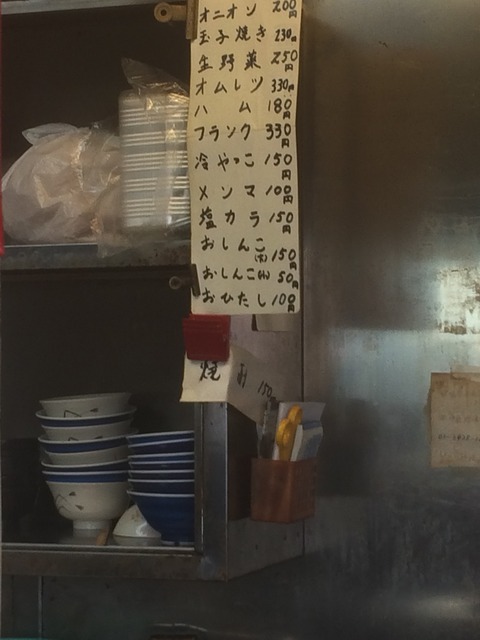 オニオン 200円
玉子焼き 230円
生野菜 250円
オムレツ 330円
ハム 180円
フランク 330円
冷やっこ 150円
メンマ 100円
塩カラ 150円
おしんこ(大) 150円
おしんこ(小) 50円
おひたし 100円
焼 150